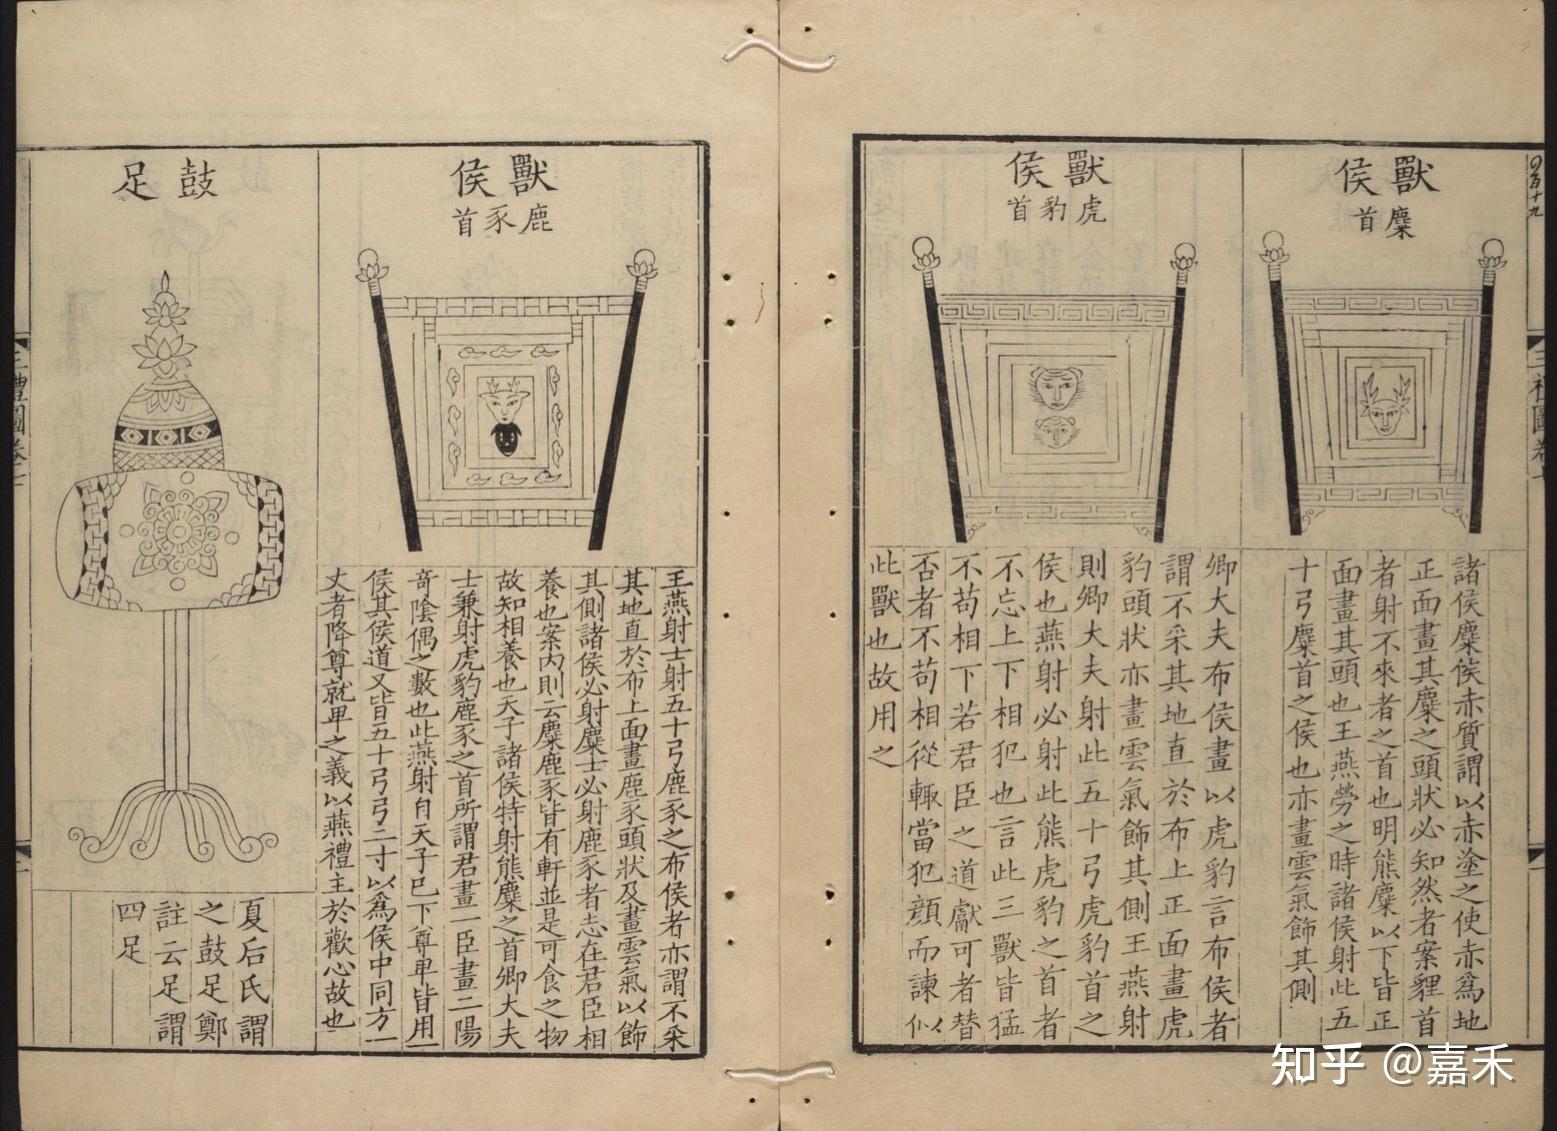 獸侯
麋首
諸侯麋侯赤質謂以赤塗之使赤爲地
正面畫其麋之頭狀必知然者案貍首
者射不來者之首也明熊麋以下皆正
面畫其頭也王燕勞之時諸侯射此五
十弓麋首之侯也亦畫雲氣飾其側
獸侯
虎豹首
卿大夫布侯畫以虎豹言布侯者
謂不采其地直於布上正面畫虎
豹頭狀亦畫雲氣飾其側王燕射
則卿大夫射此五十弓虎豹首之
侯也燕射必射此熊虎豹之首者
不忘上下相犯也言此三獸皆猛
不苟相下若君臣之道獻可者替
否者不苟相從輒當犯顔而諫似
此獸也故用之
獸侯
鹿豕首
王燕射士射五十弓鹿豕之布侯者亦謂不采
其地直於布上面畫鹿豕頭狀及畫雲氣以飾
其側諸侯必射麋士必射鹿豕者志在君臣相
養也案内則云麋鹿豕皆有軒並是可食之物
故知相養也天子諸侯特射熊麋之首卿大夫
士兼射虎豹鹿豕之首所謂君畫一臣畫二陽
奇陰偶之數也此燕射自天子已下尊卑皆用一
侯其侯道又皆五十弓弓二寸以爲侯中同方一
丈者降尊就卑之義以燕禮主於歡心故也
鼓足
夏后氏謂
之鼓足鄭
註云足謂
四足
三禮圖卷七
知乎 @嘉禾